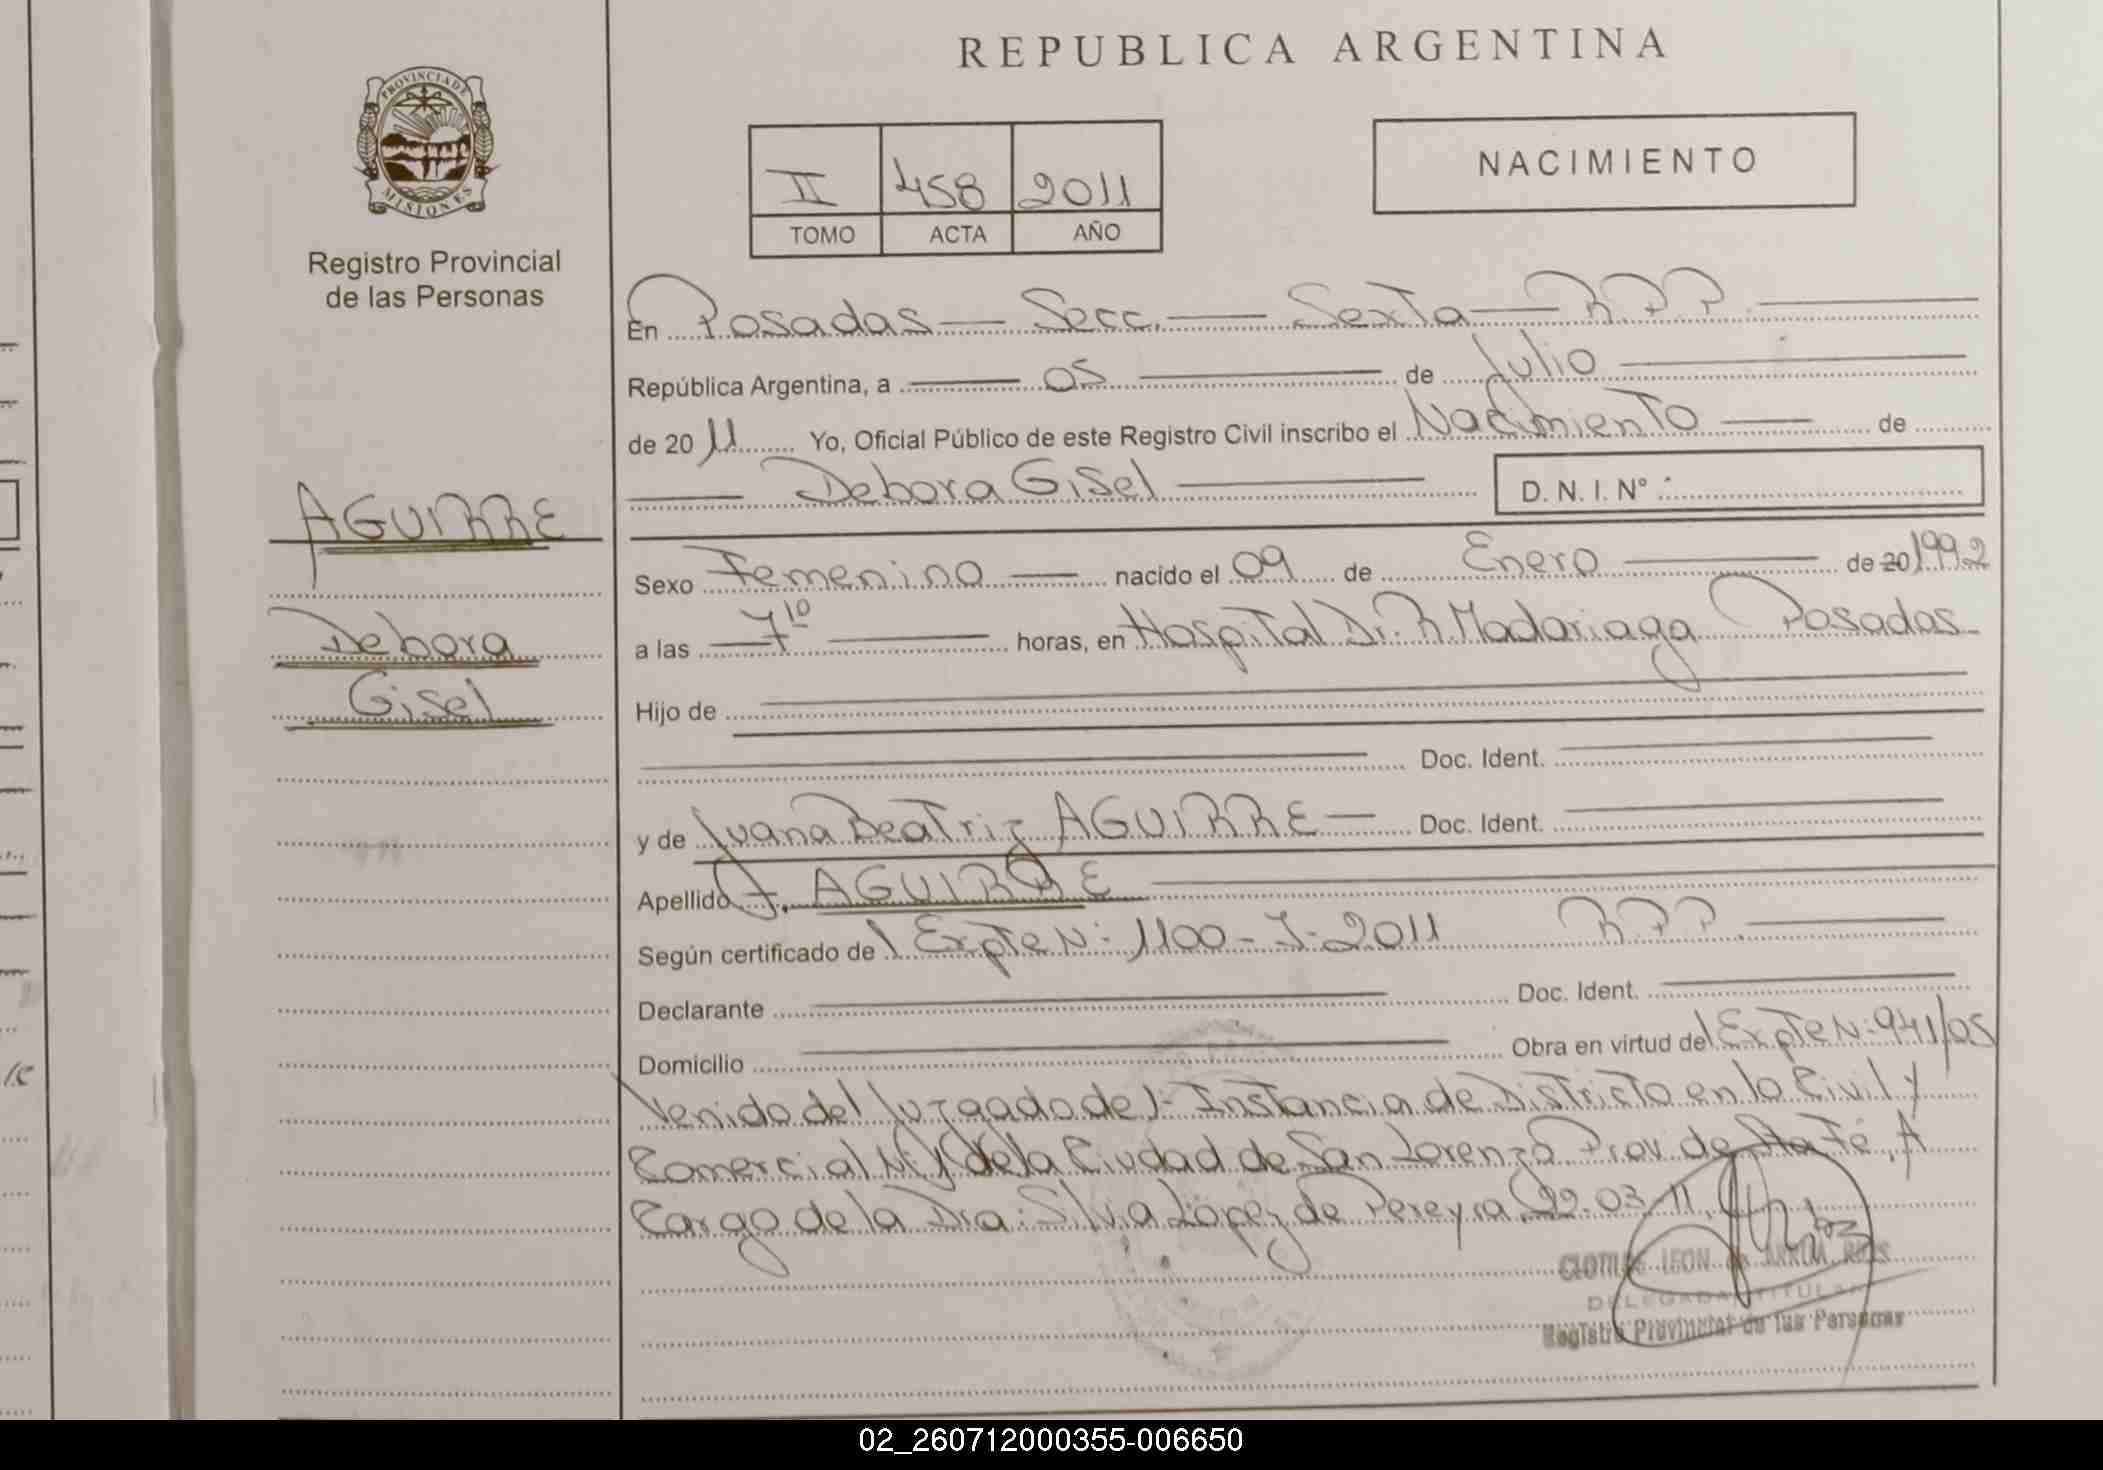 REPUBLICA ARGENTINA
PROVINCIA DE
MISIONES
Registro Provincial
de las Personas
II 458 2011
TOMO ACTA AÑO
NACIMIENTO
En Posadas — Secc. — Sexta — R.P.P
República Argentina, a 05 de Julio
de 20 11 Yo, Oficial Público de este Registro Civil inscribo el Nacimiento de
Debora Gisel D. N. I. N° :
AGUIRRE
Debora
Gisel
Sexo Femenino nacido el 09 de Enero de 20 1992
a las 7 10 horas, en Hospital Dr. R. Madariaga Posadas
Hijo de
Doc. Ident.
y de Juana Beatriz AGUIRRE Doc. Ident.
Apellido AGUIRRE
Según certificado de Expte N: 1100 - J - 2011 R.P.P
Declarante Doc. Ident.
Domicilio Obra en virtud del Expte N: 941/05
Venido del Juzgado de 1- Instancia de Districto en lo Civil y
Comercial de la Ciudad de San Lorenzo Prov. de Sta Fé, A
Cargo de la Dra: Silvia López de Pereyra, 22-03-11,
LEON de
DELEGADA TITULAR
Registro Provincial de las Personas
02_260712000355-006650